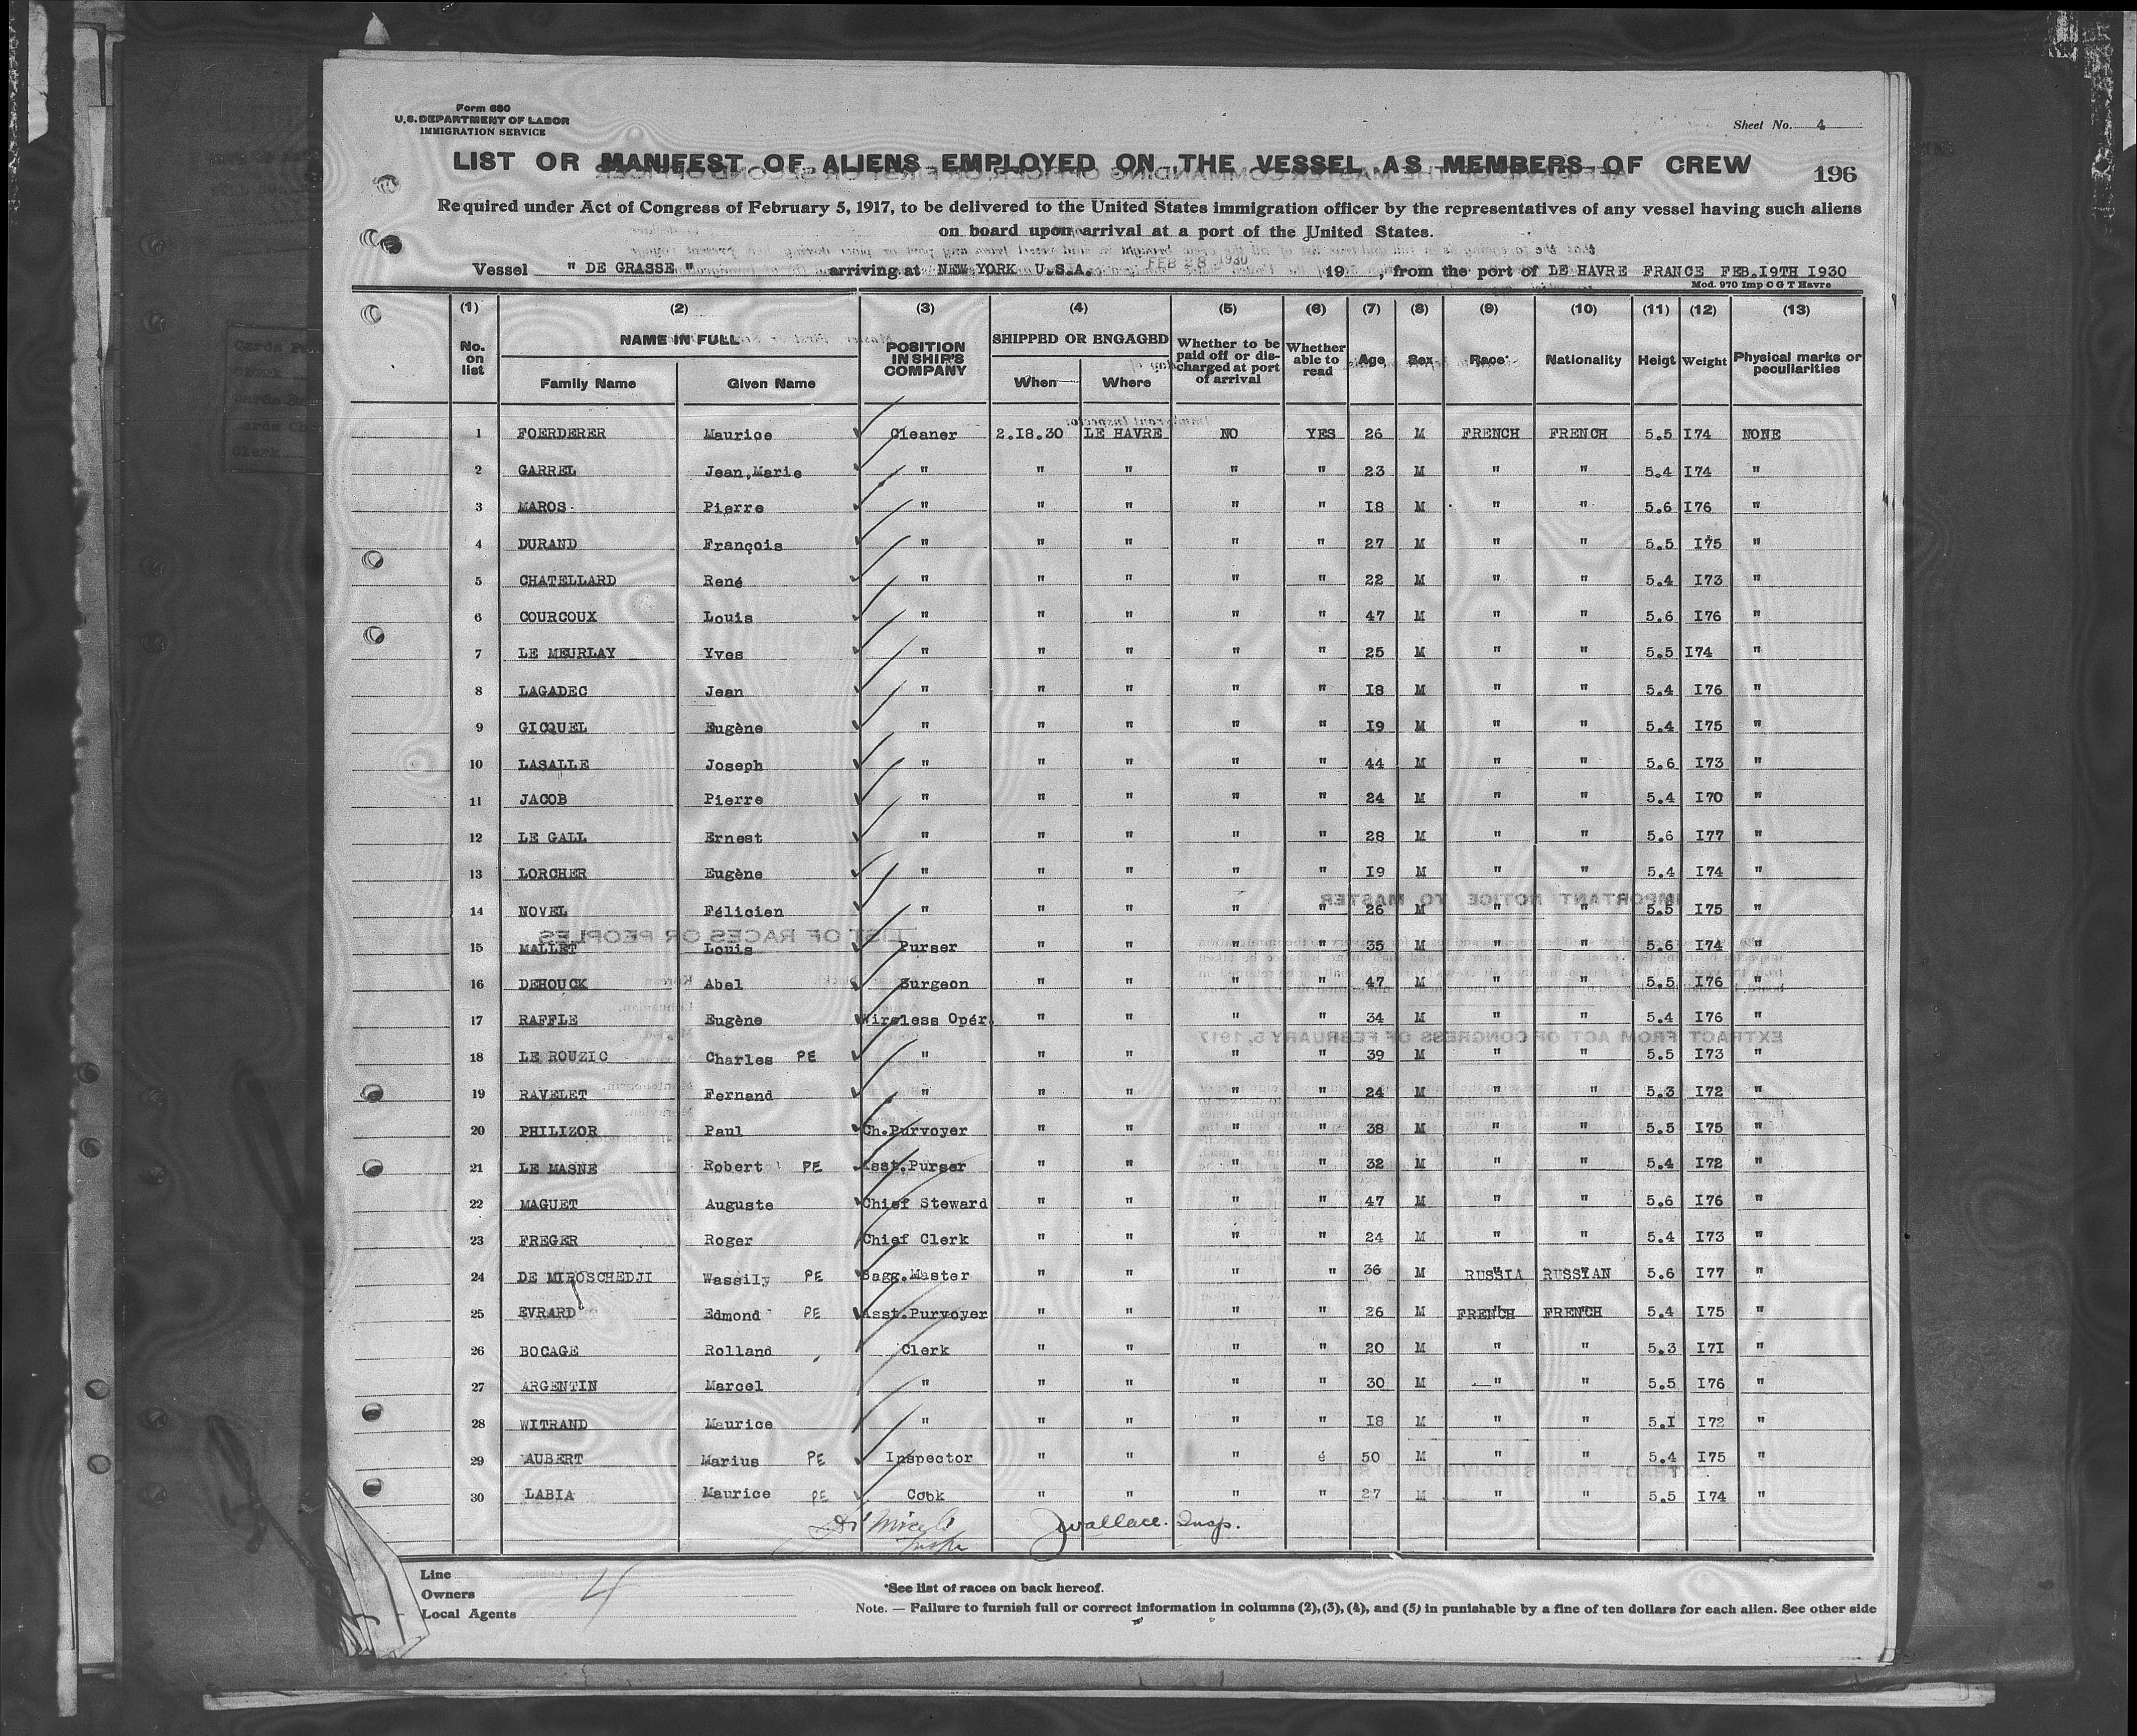 Form 680
U.S. DEPARTMENT OF LABOR
IMMIGRATION SERVICE
Sheet No. 4
LIST OR MANIFEST OF ALIENS EMPLOYED ON THE VESSEL AS MEMBERS OF CREW
196
Required under Act of Congress of February 5, 1917, to be delivered to the United States immigration officer by the representatives of any vessel having such aliens
on board upon arrival at a port of the United States.
Vessel " DE GRASSE " arriving at NEW YORK U.S.A. FEB 28 1930 19 , from the port of LE HAVRE FRANCE FEB.I9TH I930
Mod. 970 Imp C G T Havre
(1) (2) (3) (4) (5) (6) (7) (8) (9) (10) (11) (12) (13)
No. on list NAME IN FULL Family Name Given Name POSITION IN SHIP'S COMPANY SHIPPED OR ENGAGED When Where Whether to be paid off or discharged at port of arrival Whether able to read Age Sex Race* Nationality Heigt Weight Physical marks or peculiarities
1 FOERDERER Maurice Cleaner 2.I8.30 LE HAVRE NO YES 26 M FRENCH FRENCH 5.5 I74 NONE
2 GARREL Jean,Marie " " " " " 23 M " " 5.4 I74 "
3 MAROS Pierre " " " " " I8 M " " 5.6 I76 "
4 DURAND François " " " " " 27 M " " 5.5 I75 "
5 CHATELLARD René " " " " " 22 M " " 5.4 I73 "
6 COURCOUX Louis " " " " " 47 M " " 5.6 I76 "
7 LE MEURLAY Yves " " " " " 25 M " " 5.5 I74 "
8 LAGADEC Jean " " " " " I8 M " " 5.4 I76 "
9 GICQUEL Eugène " " " " " I9 M " " 5.4 I75 "
10 LASALLE Joseph " " " " " 44 M " " 5.6 I73 "
11 JACOB Pierre " " " " " 24 M " " 5.4 I70 "
12 LE GALL Ernest " " " " " 28 M " " 5.6 I77 "
13 LORCHER Eugène " " " " " I9 M " " 5.4 I74 "
14 NOVEL Félicien " " " " " 26 M " " 5.5 I75 "
15 MALLET Louis Purser " " " " 35 M " " 5.6 I74 "
16 DEHOUCK Abel Surgeon " " " " 47 M " " 5.5 I76 "
17 RAFFLE Eugène Wireless Opér. " " " " 34 M " " 5.4 I76 "
18 LE ROUZIC Charles PE " " " " " 39 M " " 5.5 I73 "
19 RAVELET Fernand " " " " " 24 M " " 5.3 I72 "
20 PHILIZOR Paul Ch.Purvoyer " " " " 38 M " " 5.5 I75 "
21 LE MASNE Robert PE Asst.Purser " " " " 32 M " " 5.4 I72 "
22 MAGUET Auguste Chief Steward " " " " 47 M " " 5.6 I76 "
23 FREGER Roger Chief Clerk " " " " 24 M " " 5.4 I73 "
24 DE MIROSCHEDJI Wassily PE Bagg.Master " " " " 36 M RUSSIA RUSSIAN 5.6 I77 "
25 EVRARD Edmond PE Asst.Purvoyer " " " " 26 M FRENCH FRENCH 5.4 I75 "
26 BOCAGE Rolland Clerk " " " " 20 M " " 5.3 I7I "
27 ARGENTIN Marcel " " " " " 30 M " " 5.5 I76 "
28 WITRAND Maurice " " " " " I8 M " " 5.I I72 "
29 AUBERT Marius PE Inspector " " " é 50 M " " 5.4 I75 "
30 LABIA Maurice PE Cook " " " " 27 M " " 5.5 I74 "
Wallace. Insp.
Line
Owners 4
Local Agents
*See list of races on back hereof.
Note. — Failure to furnish full or correct information in columns (2), (3), (4), and (5) in punishable by a fine of ten dollars for each alien. See other side